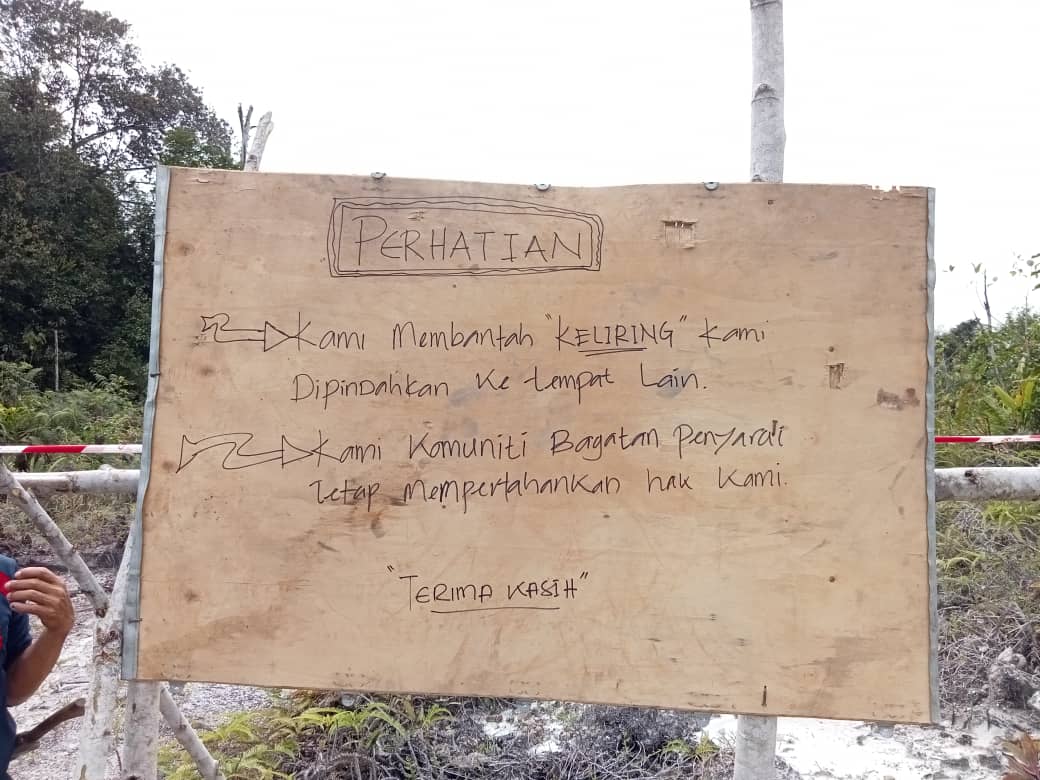 PERHATIAN
Kami Membantah "KELIRING" Kami
Dipindahkan Ke tempat Lain.
Kami Komuniti Bagatan Penyarai
tetap mempertahankan hak Kami.
"TERIMA KASIH"